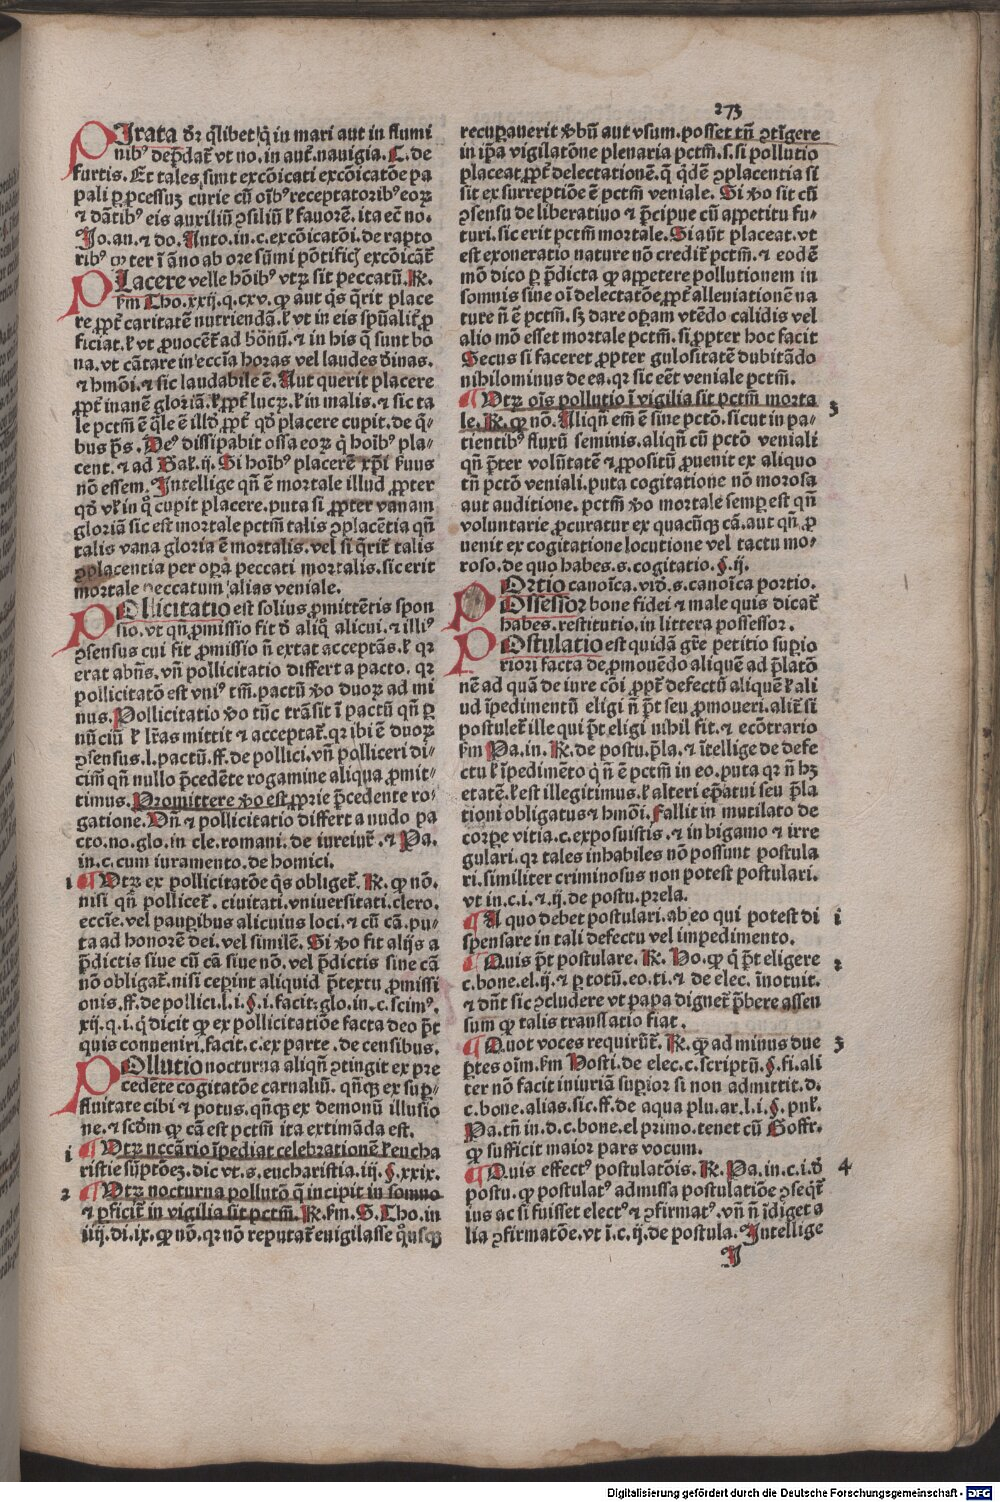 273
PIrata dr̄ q̄libet q̇ in mari aut in flumi
nibꝰ dep̄dat̄ vt no. in aut̄. nauigia. C. de
furtis. Et tales sunt excōicati excōicatōe pa
pali ꝑ ꝓcessuꝫ curie cū oībꝰ receptatoribꝰ eoꝝ
⁊ dātibꝰ eis auxiliū ꝯsiliū ł fauorē. ita ec̄ no.
Jo. an. ⁊ do. Anto. in. c. excōicatōi. de rapto
ribꝰ ⁊ ter ī āno ab ore sūmi pōtificꝭ excōicāt̄
PLacere velle hōibꝰ vtꝝ sit peccatū. R̄.
ẜm Tho. xxij. q. cxv. ꝙ aut q̄s q̄rit place
re ꝓpt̄ caritatē nutriendā. ł vt in eis sp̄ualit̄ ꝓ
ficiat. ł vt ꝓuocēt ad bōnū. ⁊ in his q̄ sunt bo
na. vt cātare in eccīa horas vel laudes d̄inas.
⁊ hmōi. ⁊ sic laudabile ē. Aut querit placere
ꝓpt̄ inanē gloriā. ł ꝓpt̄ lucꝝ. ł in malis. ⁊ sic ta
le pctm̄ ē q̄le ē illd̄ ꝓpt̄ qd̄ placere cupit. de q̄-
bus p̄s. Deꝰ dissipabit ossa eoꝝ q̇ hoībꝰ pla-
cent. ⁊ ad Gal̄. ij. Si hoībꝰ placerē xp̄i ẜuus
nō essem. Intellige qn̄ ē mortale illud ꝓpter
qd̄ vl̄ in q̇ cupit placere. puta si ꝓpter vanam
gloriā sic est mortale pctm̄ talis ꝯplacētia qn̄
talis vana gloria ē mortalis. vel si q̄rit̄ talis
ꝯplacentia per oꝑa peccati mortalis. sic erit
mortale peccatum alias veniale.
POllicitatio est solius ꝓmittētis spon
sio. vt qn̄ ꝓmissio fit d̄ aliq̇ alicui. ⁊ illiꝰ
ꝯsensus cui fit ꝓmissio n̄ extat acceptās. ł qꝛ
erat abn̄s. vn̄ pollicitatio differt a pacto. qꝛ
pollicitatō est vniꝰ tm̄. pactū ꝟo duoꝝ ad mi
nus. Pollicitatio ꝟo tūc trāsit ī pactū qn̄ ꝑ
nūciū ł lr̄as mittit ⁊ acceptat̄. qꝛ ibi ē duoꝝ
ꝯsensus. l. pactū. ff. de pollici. vn̄ polliceri di-
cim̄ qn̄ nullo p̄cedēte rogamine aliqua ꝓmit-
timus. Promittere ꝟo est ꝓprie p̄cedente ro-
gatione. Dn̄ ⁊ pollicitatio differt a nudo pa
cto. no. glo. in cle. romani. de iureiur̄. ⁊ Pa.
in. c. cum iuramento. de homici.
1 ¶ Vtꝝ ex pollicitatōe q̄s obliget̄. R̄. ꝙ nō.
nisi qn̄ pollicet̄. ciuitati. vniuersitati. clero.
eccīe. vel pauꝑibus alicuius loci. ⁊ cū cā. pu-
ta ad honorē dei. vel similē. Si ꝟo fit alijs a
p̄dictis siue cū cā siue nō. vel p̄dictis sine cā
nō obligat̄. nisi cepint aliquid p̄textu ꝓmissi
onis. ff. de pollici. l. i. §. i. facit glo. in. c. scimꝰ.
xij. q. i. q̄ dicit ꝙ ex pollicitatiōe facta deo p̄t
quis conueniri. facit. c. ex parte. de censibus.
POllutio nocturna aliqn̄ ꝯtingit ex pre
cedēte cogitatōe carnaliū. qn̄qꝫ ex suꝑ-
fluitate cibi ⁊ potus. qn̄qꝫ ex demonū illusio
ne. ⁊ scd̄m ꝙ cā est pctm̄ ita extimāda est.
1 ¶ Vtꝝ nccārio īpediat celebrationē ł eucha
ristie sūptōeꝫ. dic vt. s. eucharistia. iij. §. xxix.
2 ¶ Vtꝝ nocturna pollutō q̄ incipit in somno
⁊ ꝑficit̄ in vigilia sit pctm̄. R̄. ẜm. S. Tho. in
iiij. di. ix. ꝙ nō. qꝛ nō reputat̄ euigilasse q̇usqꝫ
recuꝑauerit ꝟbū aut vsum. posset tn̄ ꝯtīgere
in ip̄a vigilatōne plenaria pctm̄. s. si pollutio
placeat ꝓpt̄ delectationē. q̄ qd̄ē ꝯplacentia si
sit ex surreptiōe ē pctm̄ veniale. Si ꝟo sit cū
ꝯsensu deliberatiuo ⁊ p̄cipue cū appetitu fu-
turi. sic erit pctm̄ mortale. Si aūt placeat. vt
est exoneratio nature nō credit̄ pctm̄. ⁊ eodē
mō dico ꝑ p̄dicta ꝙ appetere pollutionem in
somnis sine oī delectatōe ꝓpt̄ alleuiationē na
ture n̄ ē pctm̄. sꝫ dare oꝑam vtēdo calidis vel
alio mō esset mortale pctm̄. si ꝓpter hoc facit
Secus si faceret ꝓpter gulositatē dubitādo
nihilominus de ea. qꝛ sic eēt veniale pctm̄.
¶ Vtꝝ oīs pollutio ī vigilia sit pctm̄ morta 3
le. R̄. ꝙ nō. Aliqn̄ em̄ ē sine pctō. sicut in pa-
tientibꝰ fluxū seminis. aliqn̄ cū pctō veniali
qn̄ p̄ter volūtatē ⁊ ꝓpositū ꝓuenit ex aliquo
tn̄ pctō veniali. puta cogitatione nō morosa
aut auditione. pctm̄ ꝟo mortale semꝑ est qn̄
voluntarie ꝓcuratur ex quacūqꝫ cā. aut qn̄ ꝓ
uenit ex cogitatione locutione vel tactu mo-
roso. de quo habes. s. cogitatio. §. ij.
POrtio canoīca. vid̄. s. canoīca portio.
POssessor bone fidei ⁊ male quis dicat̄
habes. restitutio. in littera possessor.
POstulatio est quidā gr̄e petitio suꝑio
riori facta de ꝓmouēdo aliquē ad p̄latō
nē ad quā de iure cōi ꝓpt̄ defectū aliquē ł ali
ud īpedimentū eligi n̄ p̄t seu ꝓmoueri. alit̄ si
postulet̄ ille qui p̄t eligi nihil fit. ⁊ ecōtrario
ẜm Pa. in. R̄. de postu. p̄la. ⁊ ītellige de defe
ctu ł īpedimēto q̇ n̄ ē pctm̄ in eo. puta qꝛ n̄ hꝫ
etatē. ł est illegitimus. ł alteri ep̄atui seu p̄la
tioni obligatus ⁊ hmōi. Fallit in mutilato de
corꝑe vitia. c. exposuistis. ⁊ in bigamo ⁊ irre
gulari. qꝛ tales inhabiles nō possunt postula
ri. similiter criminosus non potest postulari.
vt in. c. i. ⁊ ij. de postu. prela.
¶ A quo debet postulari. ab eo qui potest di 1
spensare in tali defectu vel impedimento.
¶ Quis p̄t postulare. R̄. Ho. ꝙ q̇ p̄t eligere 2
c. bone. el. ij. ⁊ ꝑ totū. eo. ti. ⁊ de elec. īnotuit.
⁊ dn̄t sic ꝯcludere vt papa dignet̄ p̄bere assen
sum ꝙ talis translatio fiat.
¶ Quot voces requirūt̄. R̄. ꝙ ad minus due 3
ꝑtes oīm. ẜm Hosti. de elec. c. scriptū. §. fi. ali
ter nō facit iniuriā suꝑior si non admittit. d.
c. bone. alias. sic. ff. de aqua plu. ar. l. i. §. pul̄.
Pa. tn̄ in. d. c. bone. el primo. tenet cū Goffr.
ꝙ sufficit maior pars vocum.
¶ Quis effectꝰ postulatōis. R̄. Pa. in. c. i. d̄ 4
postu. ꝙ postulatꝰ admissa postulatiōe ꝯseqt̄
ius ac si fuisset electꝰ ⁊ ꝯfirmatꝰ. vn̄ n̄ īdiget a
lia ꝯfirmatōe. vt ī. c. ij. de postula. Intellige
I
Digitalisierung gefördert durch die Deutsche Forschungsgemeinschaft - DFG